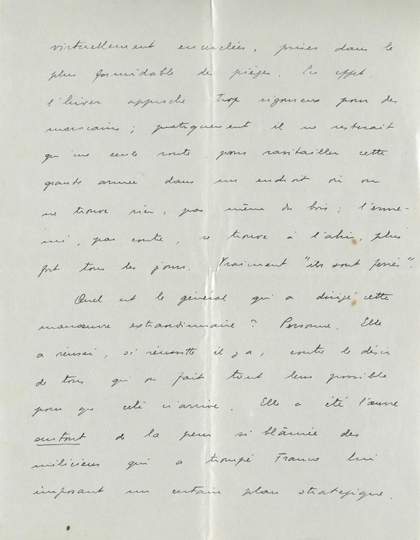 virtuellement encerclées, prises dans le
plus formidable de pièges. En effet
l'hiver approche trop rigoureux pour des
marocains ; pratiquement il ne resterait
qu'une seule route pour ravitailler cette
grande armée dans un endroit où on
ne trouve rien, pas même du bois ; l'enne-
mi, par contre, se trouve à l'abri, plus
fort tous les jours. Vraiment "ils sont forés"
Quel est le général qui a dirigé cette
manœuvre extraordinaire ? Personne. Elle
a réussi, si réussite il y a, contre le désir
de tous qui on fait tout leur possible
pour que celà n'arrive. Elle a été l'œuvre
surtout de la peur si blâmée des
miliciens qui a trompé Franco lui
imposant un certain plan stratégique.